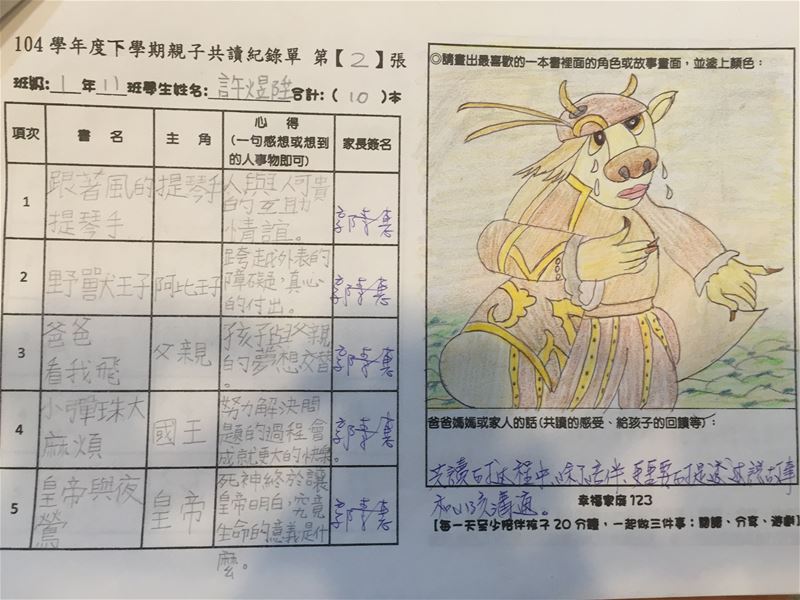 104 學年度下學期親子共讀紀錄單 第【2】張
班級:1年11班學生姓名:許煜陞合計:(10)本
項次 書 名 主 角 心 得 家長簽名
(一句感想或想到
的人事物即可)
1 跟著風的
提琴手 提琴手 人與人可貴
的互助
情誼。
2 野獸王子 阿比王子 跨越外表的
障礙,真心
的付出。
3 爸爸
看我飛 父親 孩子與父親
的夢想交替
。
4 小彈珠大
麻煩 國王 努力解決問
題的過程會
成就更大的快樂。
5 皇帝與夜
鶯 皇帝 死神終於讓
皇帝明白,究竟
生命的意義是什
麼。
◎請畫出最喜歡的一本書裡面的角色或故事畫面,並塗上顏色:
爸爸媽媽或家人的話(共讀的感受、給孩子的回饋等):
共讀的過程中,除了陪伴,更重要的是透過說故事
和小孩溝通。
幸福家庭 123
【每一天至少陪伴孩子 20 分鐘,一起做三件事:閱讀、分享、遊戲】